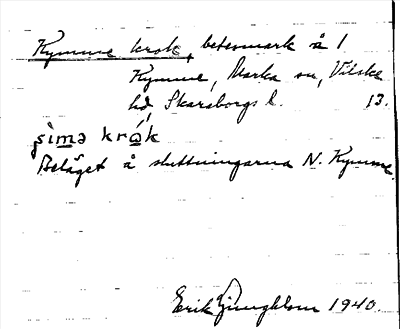 Kymme krok, betesmark å 1
Kymme, Marka sn, Vilske
hd, Skaraborgs l. 13.
ʂìmə krók
Beläget å sluttningarna N. Kymme.
Erik Ljungblom 1940.